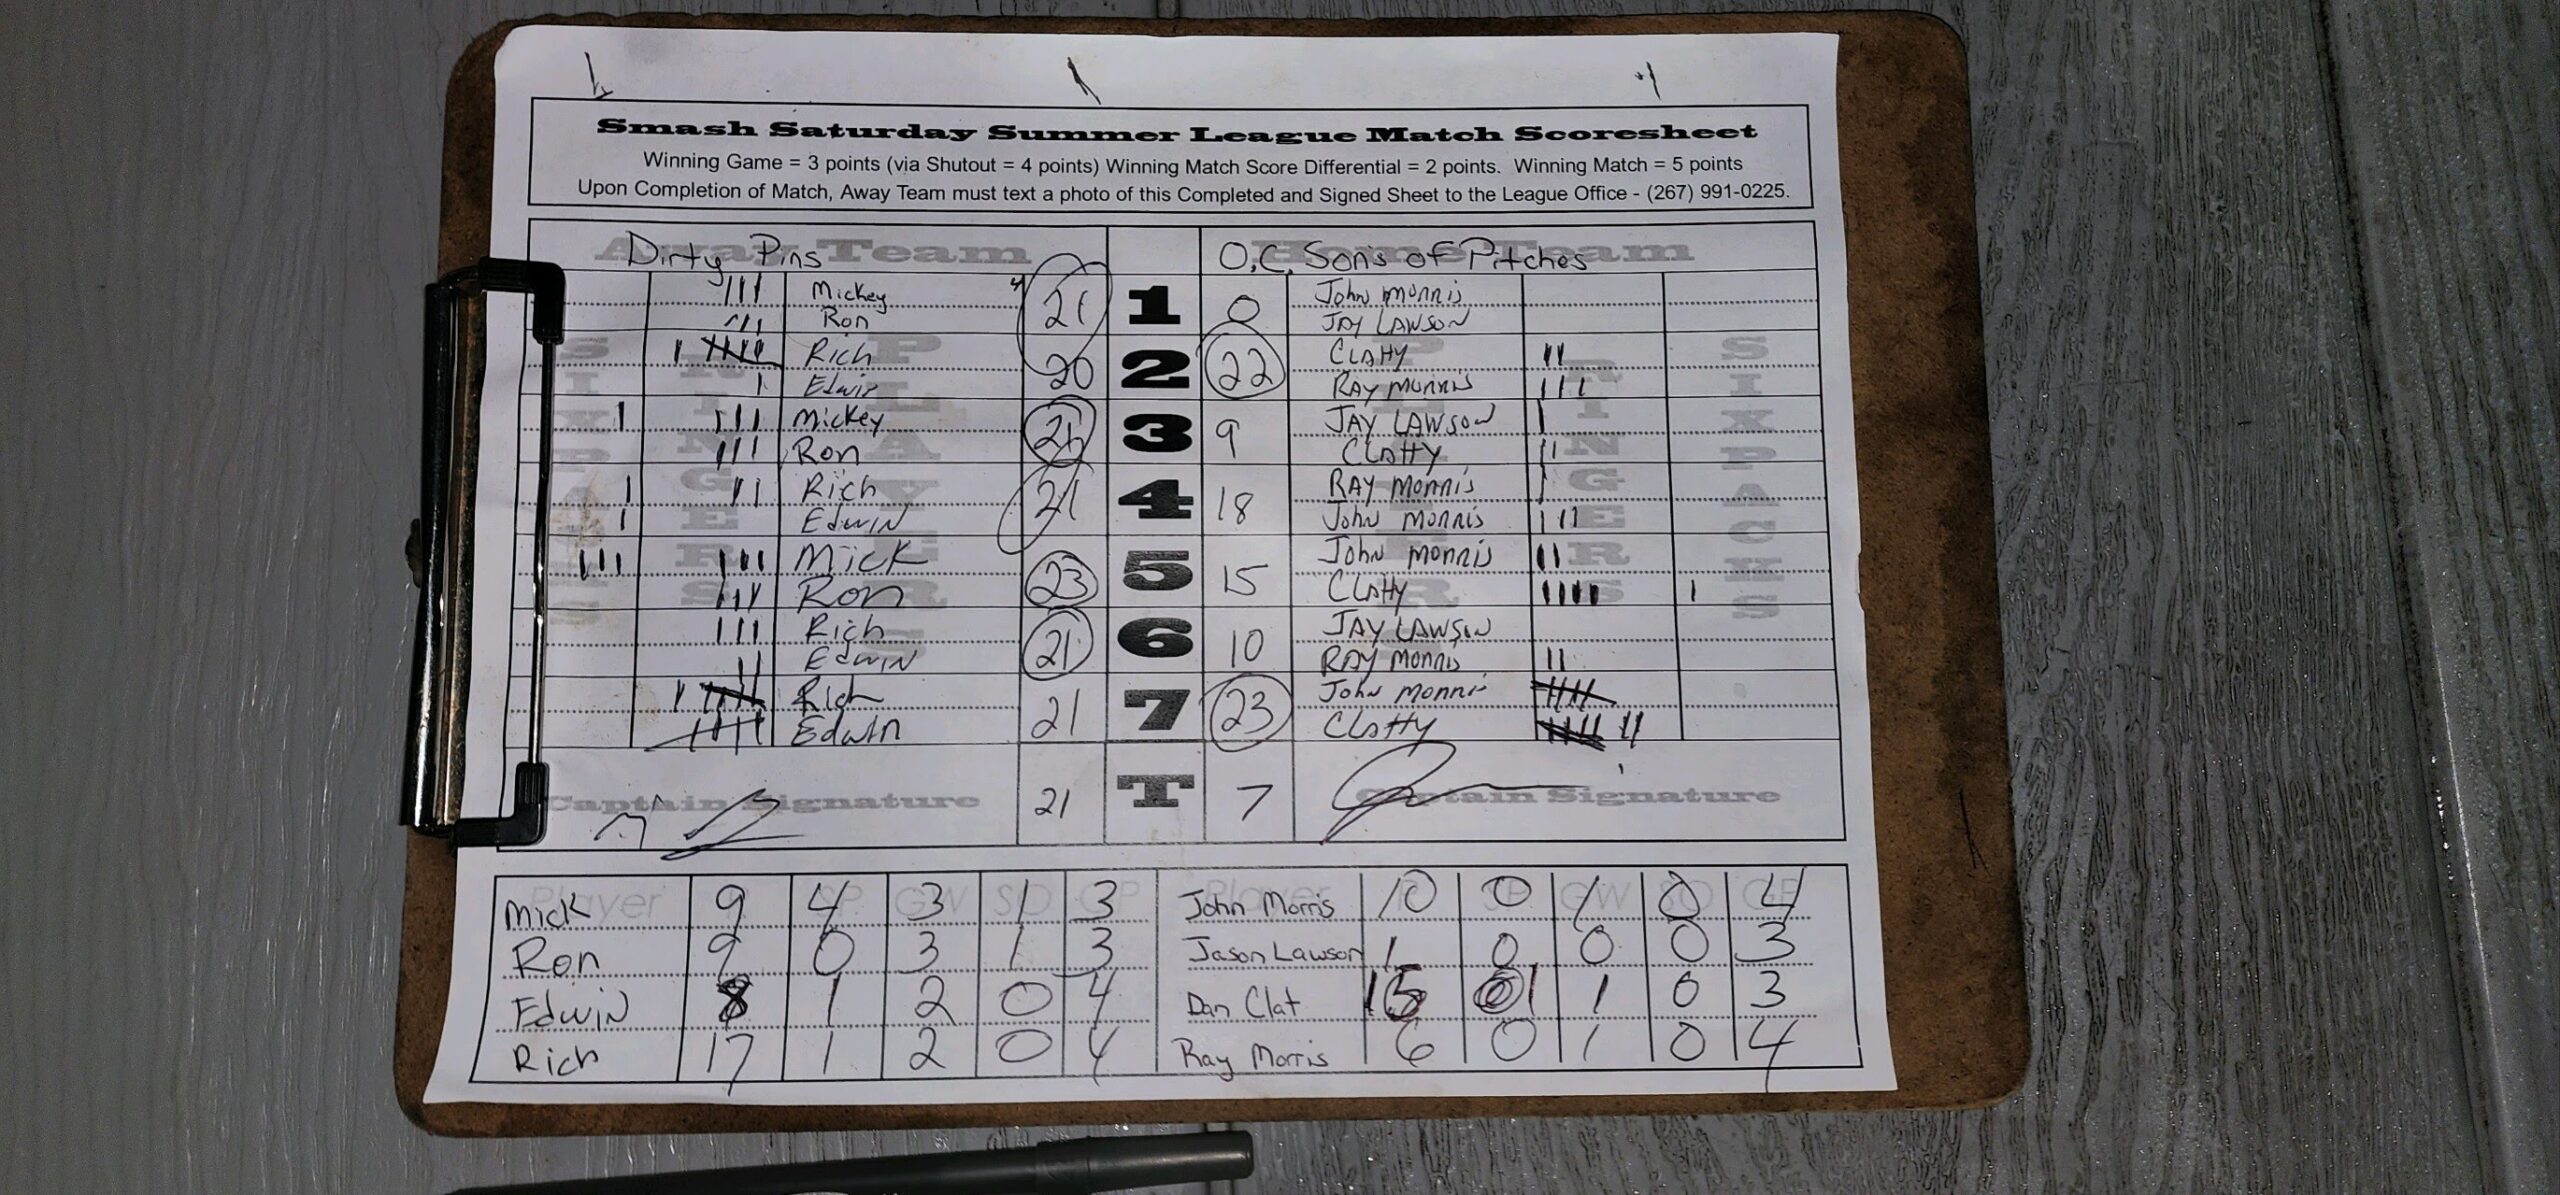 Smash Saturday Summer League Match Scoresheet
Winning Game = 3 points (via Shutout = 4 points) Winning Match Score Differential = 2 points. Winning Match = 5 points
Upon Completion of Match, Away Team must text a photo of this Completed and Signed Sheet to the League Office - (267) 991-0225.
Away Team Home Team
Dirty Pins O.C. Sons of Pitches
Mickey 21 1 0 John Morris
Ron JAY LAWSON
Rich 20 2 22 CLATTY
Edwin RAY MORRIS
Mickey 21 3 9 JAY LAWSON
Ron CLATTY
Rich 21 4 18 RAY MORRIS
EDWIN John MORRIS
Mick 23 5 15 John MORRIS
Ron CLATTY
Rich 21 6 10 JAY LAWSON
EDWIN RAY MORRIS
Rich 21 7 23 John MORRIS
Edwin CLATTY
SIXPACKS RINGERS PLAYERS PLAYERS RINGERS SIXPACKS
Captain Signature 21 T 7 Captain Signature
Player R SP GW SO GP Player R SP GW SO GP
Mick 9 4 3 1 3 John Morris 10 0 1 0 4
Ron 9 0 3 1 3 Jason Lawson 1 0 0 0 3
Edwin 8 1 2 0 4 Dan Clat 15 1 1 0 3
Rich 17 1 2 0 4 Ray Morris 6 0 1 0 4